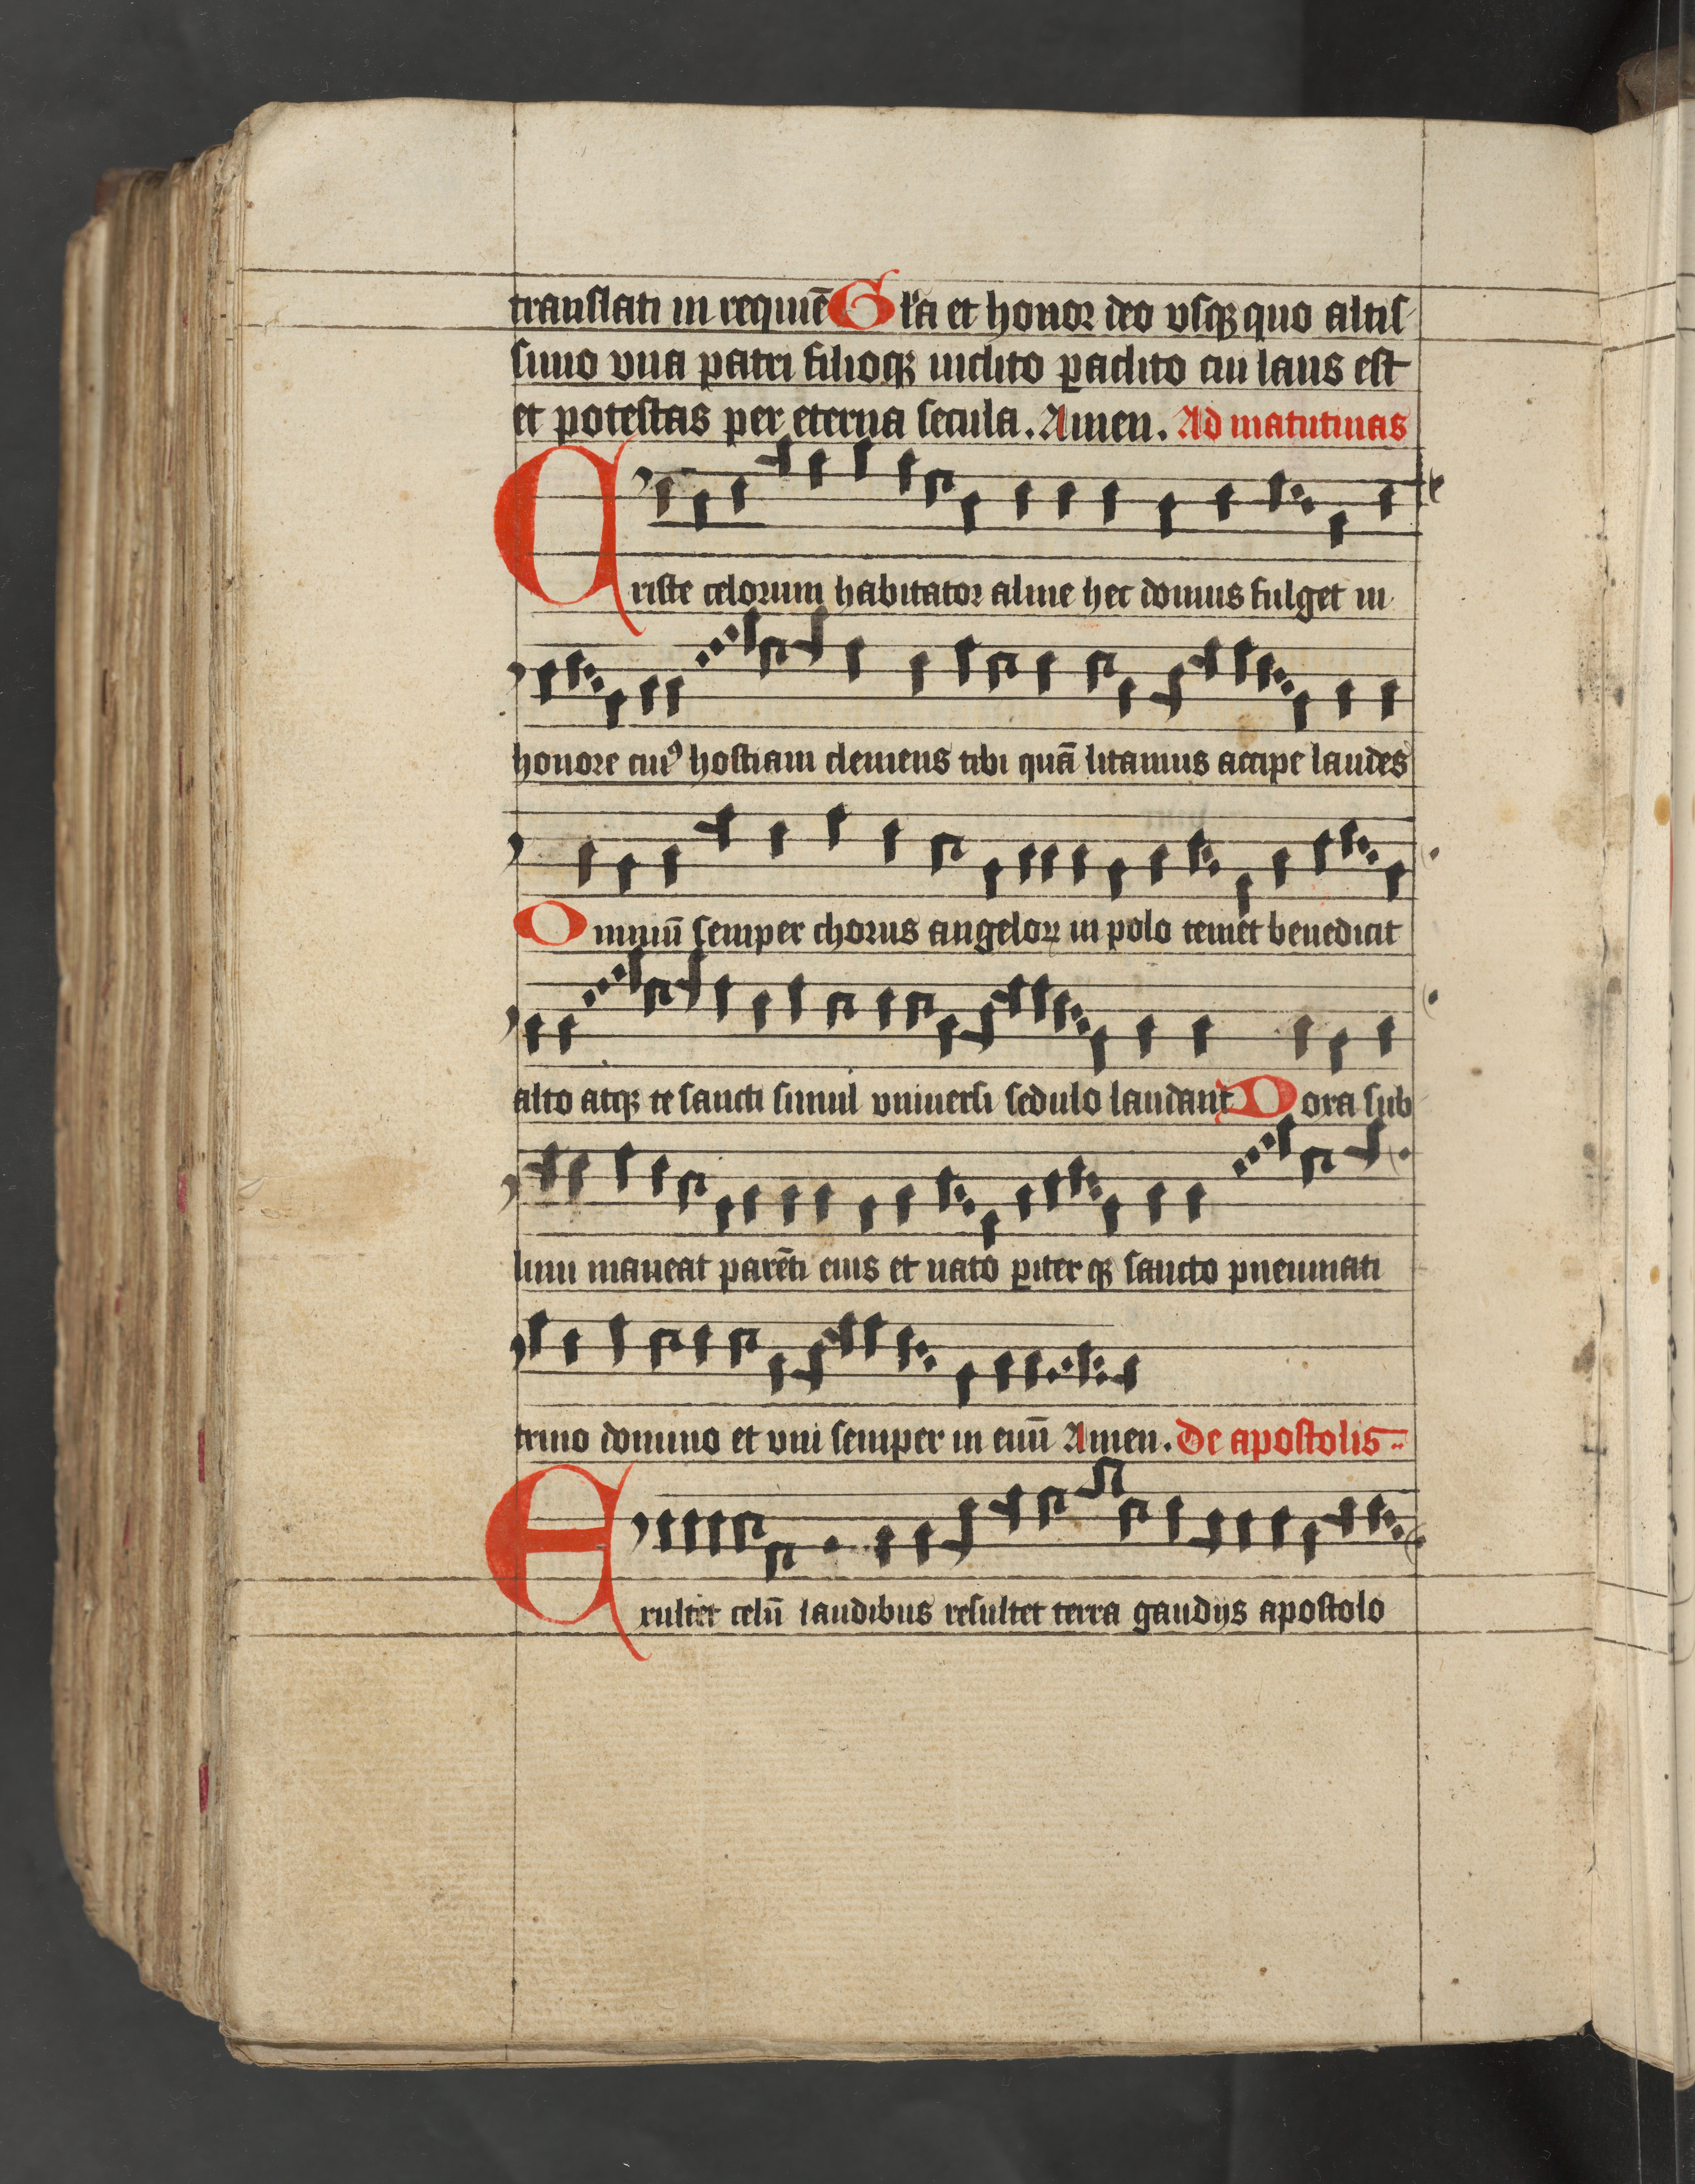 translati in requiē Gl'a et honor deo vsqꝫ quo altis-
simo vna patri filioqꝫ inclito ꝑaclito cui laus est
et potestas per eterna secula. Amen. Ad matutinas
Criste celorum habitator alme hec domus fulget in
honore cuiꝰ hostiam clemens tibi quā litamus accipe laudes
Omniū semper chorus angeloꝝ in polo temet benedicit
alto atqꝫ te sancti simul vniuersi sedulo laudant Dora sub
limi maneat parēti eius et nato ꝑiter qꝫ sancto pneumati
trino domino et vni semper in euū Amen. De apostolis
Exultet celū laudibus resultet terra gaudijs apostolo